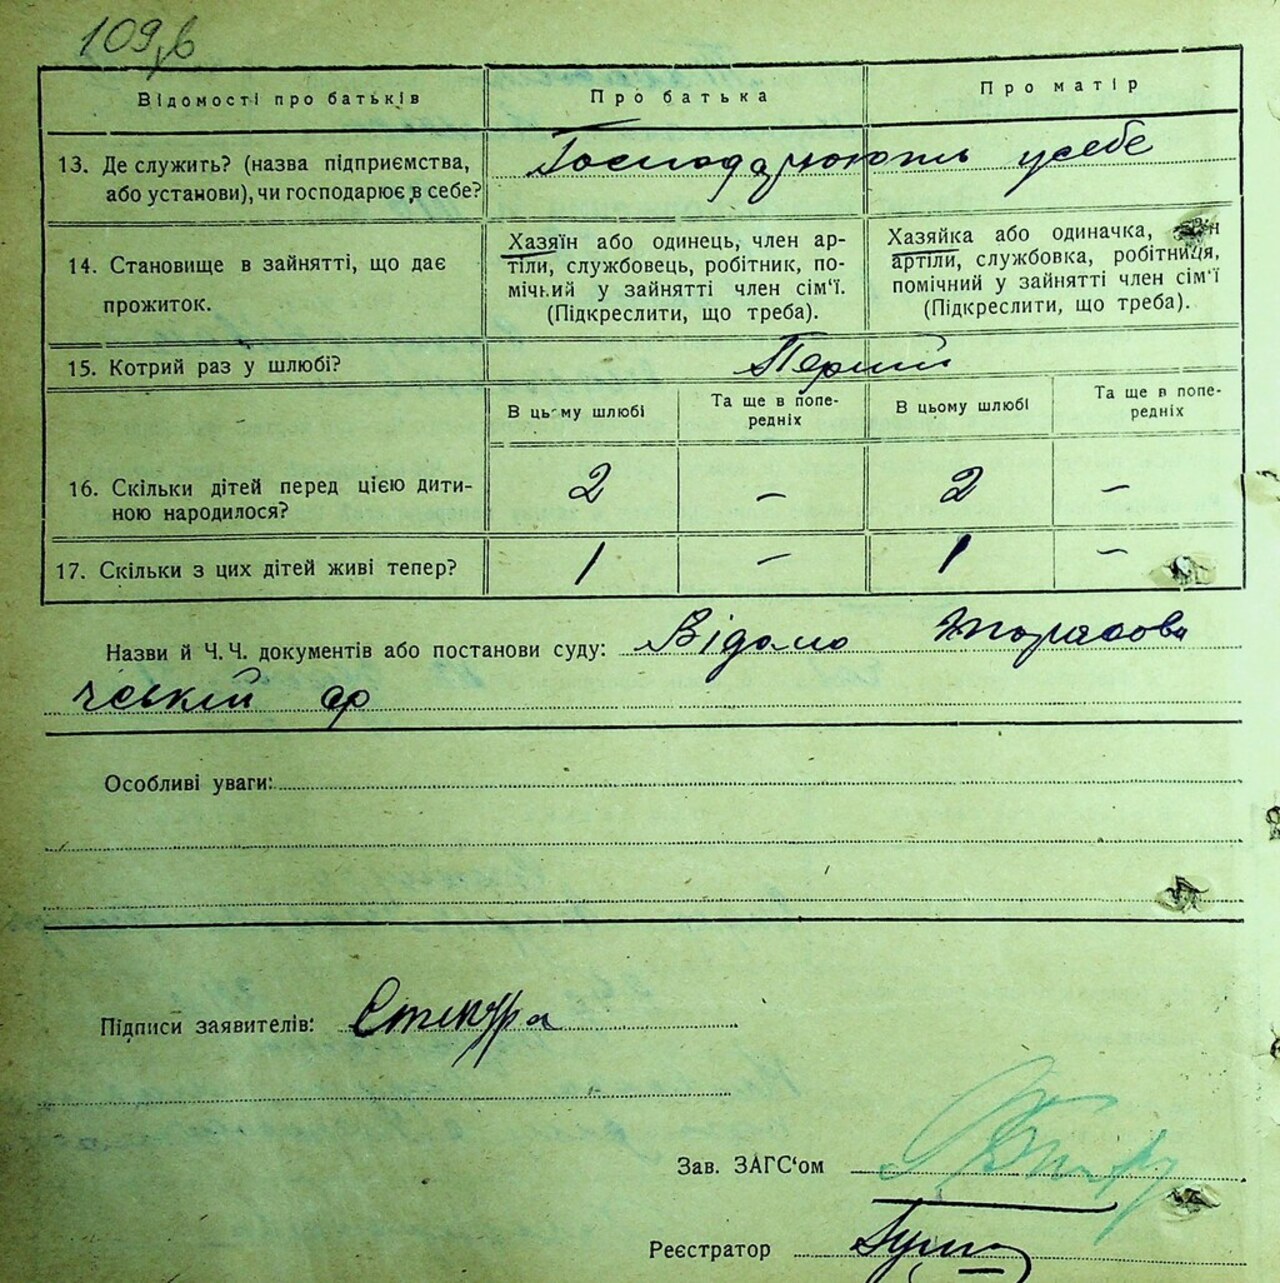 109,в
Відомості про батьків
Про батька
Про матір
13. Де служить? (назва підприємства,
або установи), чи господарює в себе?
Господарюють у себе
14. Становище в зайнятті, що дає
прожиток.
Хазяїн або одинець, член ар-
тіли, службовець, робітник, по-
мічний у зайнятті член сім‘ї.
(Підкреслити, що треба).
Хазяйка або одиначка,
артіли, службовка, робітниця,
помічний у зайнятті член сім‘ї
(Підкреслити, що треба).
15. Котрий раз у шлюбі?
Перший
В цьому шлюбі
Та ще в попе-
редніх
В цьому шлюбі
Та ще в попе-
редніх
16. Скільки дітей перед цією дити-
ною народилося?
2 – 2 –
17. Скільки з цих дітей живі тепер?
1 – 1 –
Назви й Ч. Ч. документів або постанови суду: Відомо
ській ср
Особливі уваги:
Підписи заявителів:
Зав. ЗАГС‘ом
Реєстратор